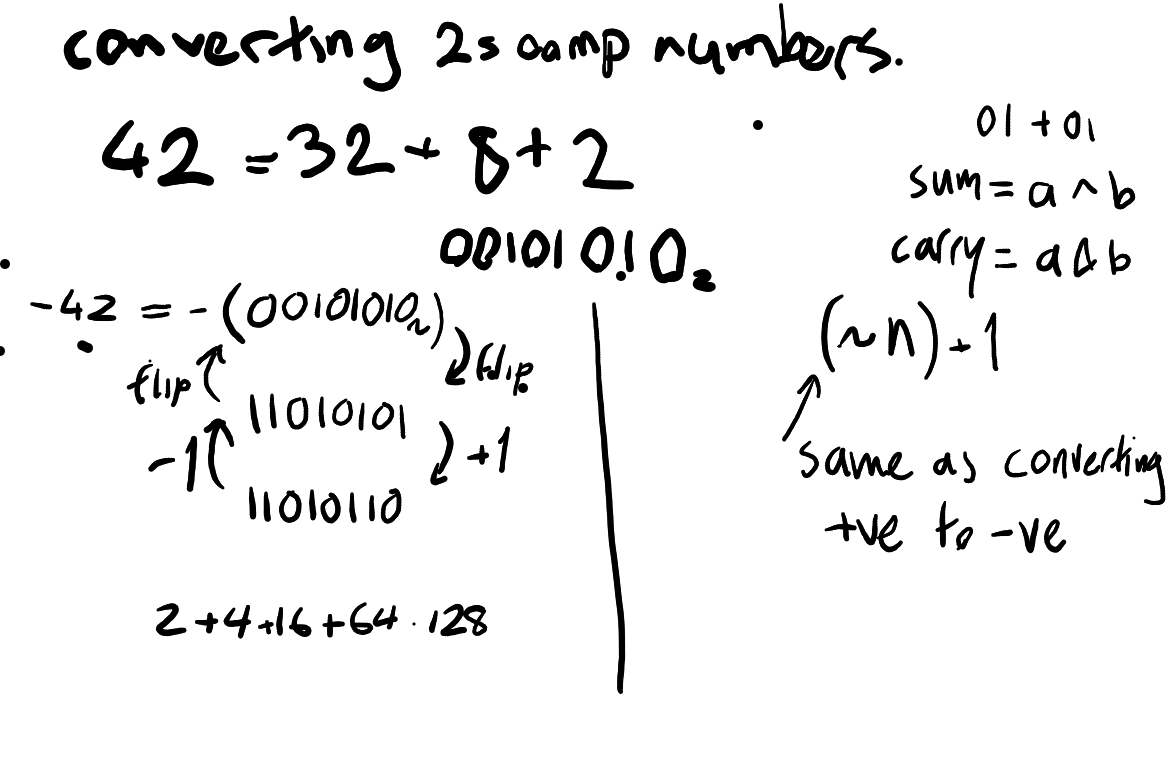 converting 2s comp numbers.
42 = 32 + 8 + 2
00101010₂
-42 = -(00101010₂)
flip
flip
11010101
-1
+1
11010110
2+4+16+64-128
01 + 01
sum = a ^ b
carry = a & b
(~n)+1
same as converting
+ve to -ve